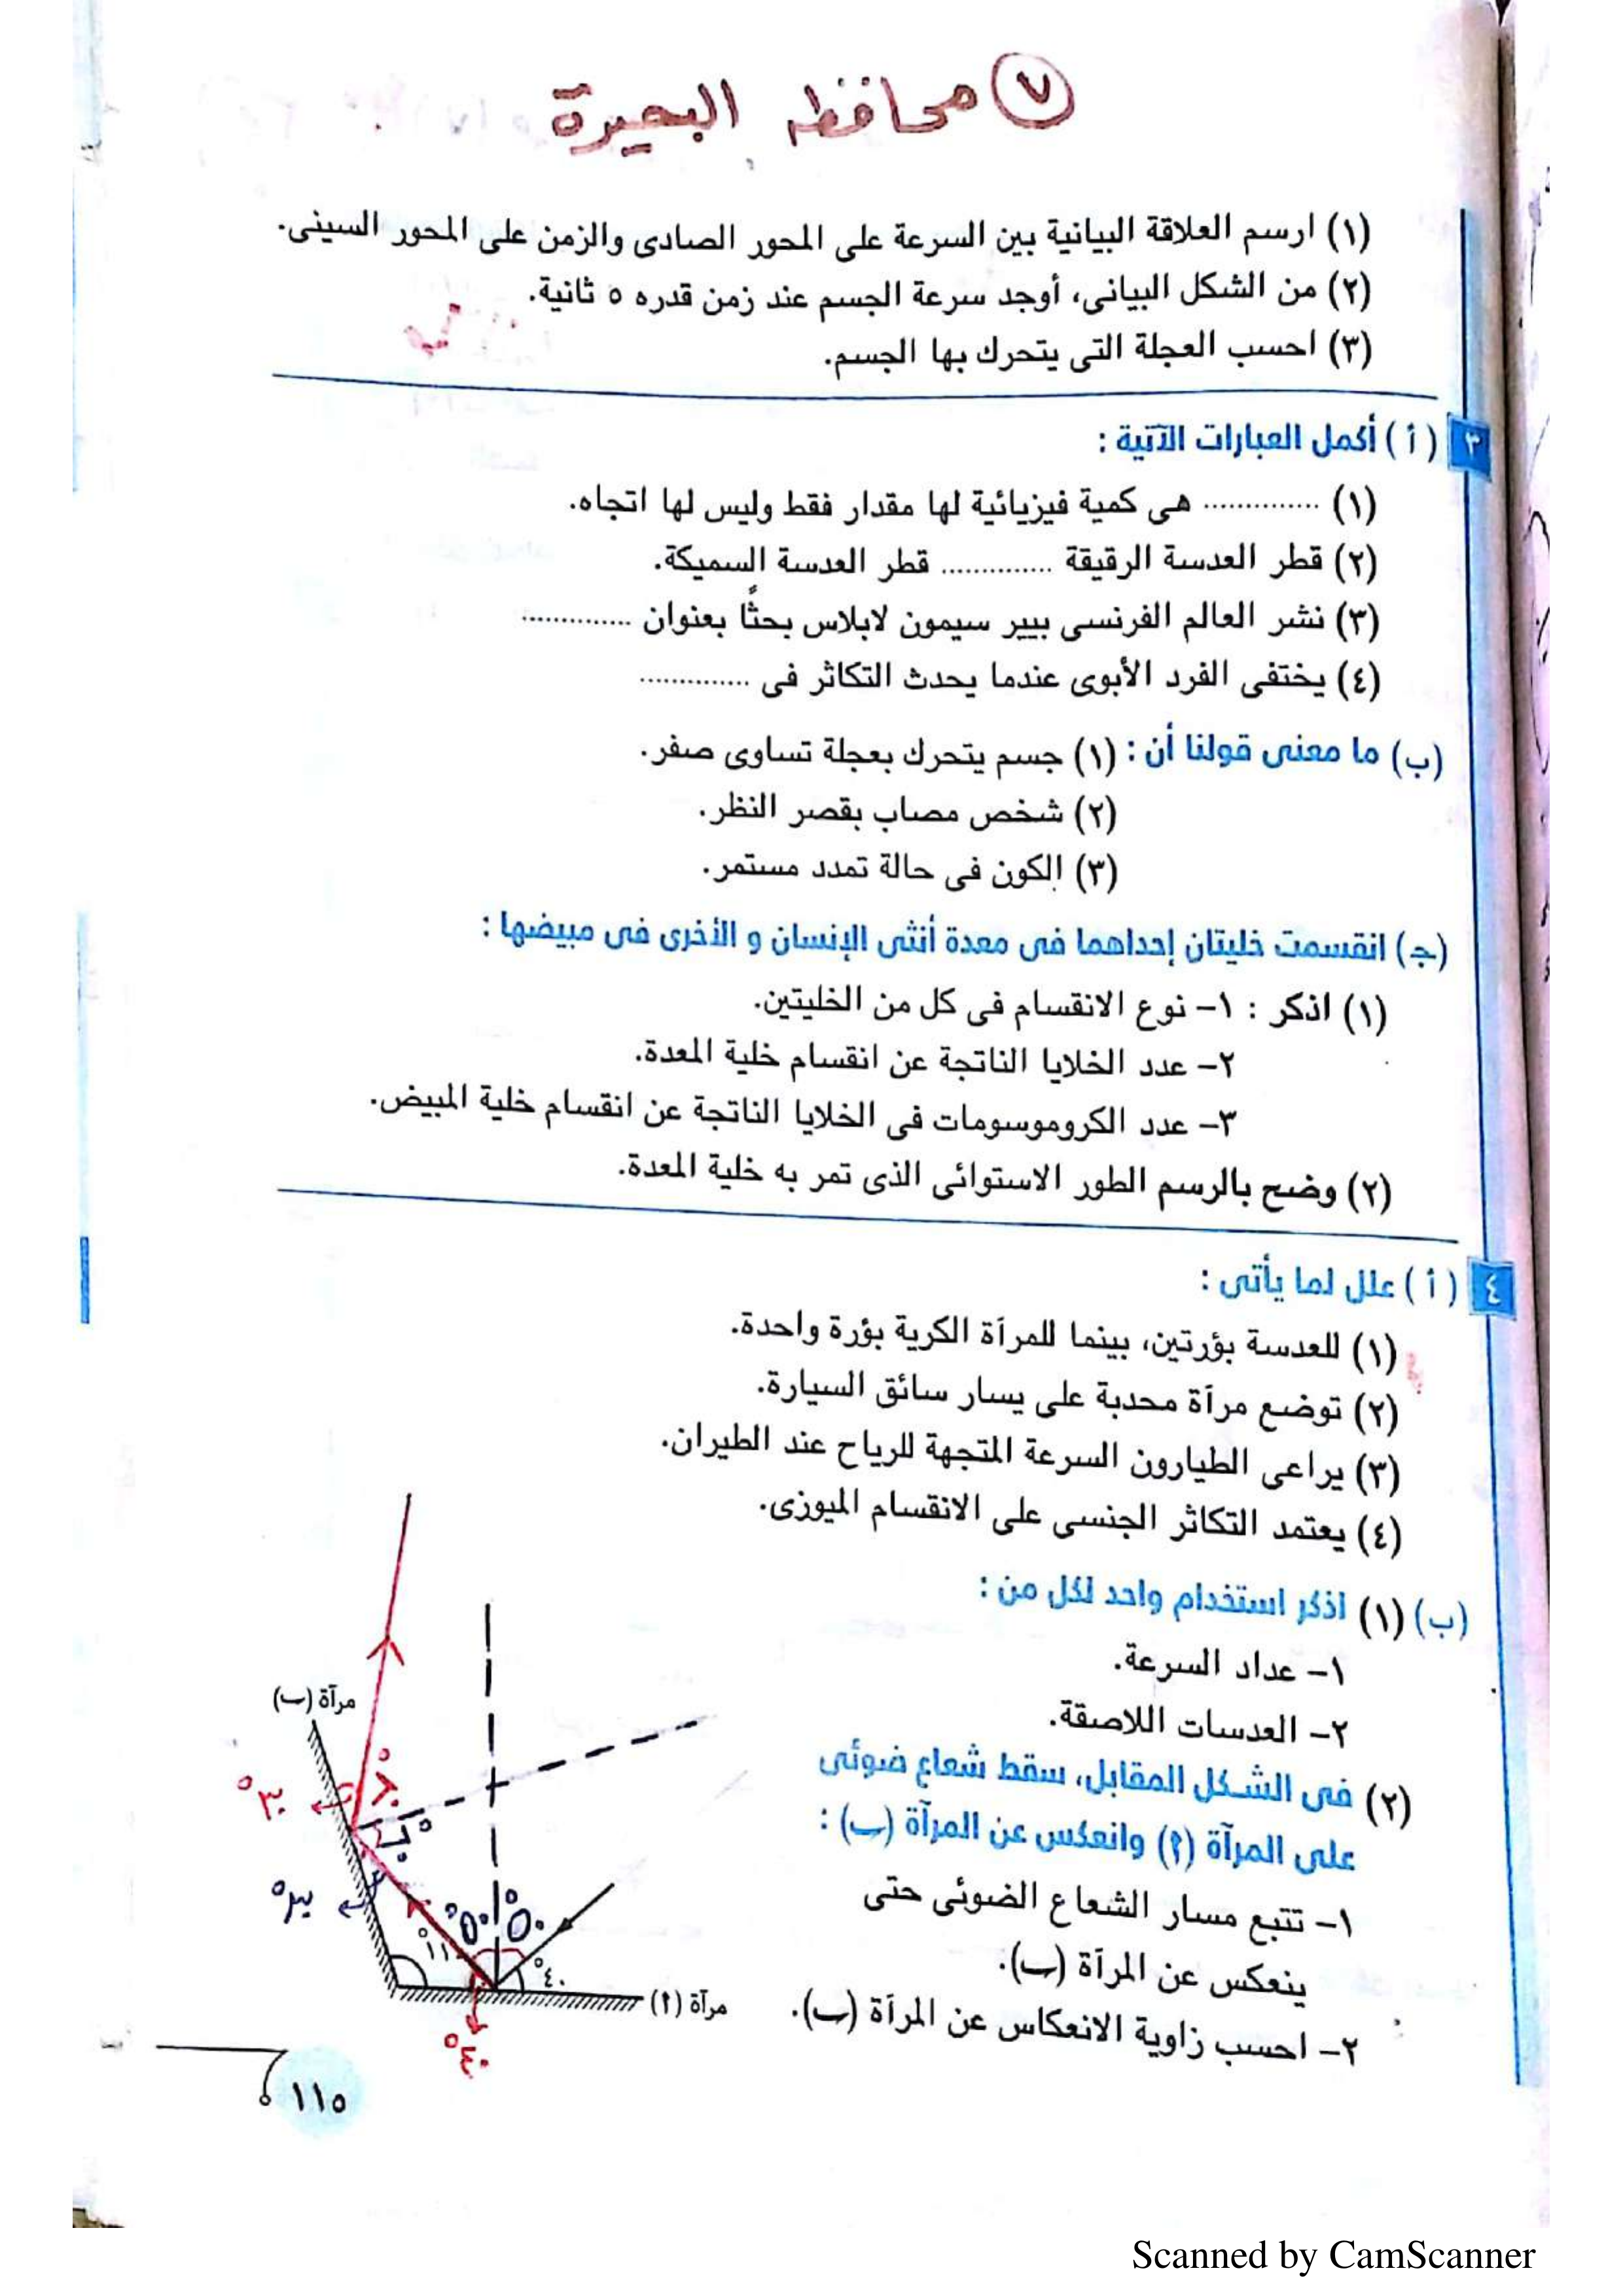 ٧ محافظه البحيرة
(١) ارسم العلاقة البيانية بين السرعة على المحور الصادى والزمن على المحور السينى.
(٢) من الشكل البيانى، أوجد سرعة الجسم عند زمن قدره ٥ ثانية.
(٣) احسب العجلة التى يتحرك بها الجسم.
٣ (أ) أكمل العبارات الآتية :
(١) .............. هى كمية فيزيائية لها مقدار فقط وليس لها اتجاه.
(٢) قطر العدسة الرقيقة .............. قطر العدسة السميكة.
(٣) نشر العالم الفرنسى بيير سيمون لابلاس بحثًا بعنوان ..............
(٤) يختفى الفرد الأبوى عندما يحدث التكاثر فى ..............
(ب) ما معنى قولنا أن : (١) جسم يتحرك بعجلة تساوى صفر.
(٢) شخص مصاب بقصر النظر.
(٣) الكون فى حالة تمدد مستمر.
(جـ) انقسمت خليتان إحداهما فى معدة أنثى الإنسان و الأخرى فى مبيضها :
(١) اذكر : ١- نوع الانقسام فى كل من الخليتين.
٢- عدد الخلايا الناتجة عن انقسام خلية المعدة.
٣- عدد الكروموسومات فى الخلايا الناتجة عن انقسام خلية المبيض.
(٢) وضح بالرسم الطور الاستوائى الذى تمر به خلية المعدة.
٤ (أ) علل لما يأتى :
(١) للعدسة بؤرتين، بينما للمرآة الكرية بؤرة واحدة.
(٢) توضع مرآة محدبة على يسار سائق السيارة.
(٣) يراعى الطيارون السرعة المتجهة للرياح عند الطيران.
(٤) يعتمد التكاثر الجنسى على الانقسام الميوزى.
(ب) (١) اذكر استخدام واحد لكل من :
١- عداد السرعة.
٢- العدسات اللاصقة.
(٢) فى الشكل المقابل، سقط شعاع ضوئى
على المرآة (أ) وانعكس عن المرآة (ب) :
١- تتبع مسار الشعاع الضوئى حتى
ينعكس عن المرآة (ب).
٢- احسب زاوية الانعكاس عن المرآة (ب).
مرآة (ب)
٦٠°
٣٠°
٦٠°
٣٠°
٥٠° ٥٠°
١١٠°
٤٠°
مرآة (أ)
٤٠°
١١٥
Scanned by CamScanner